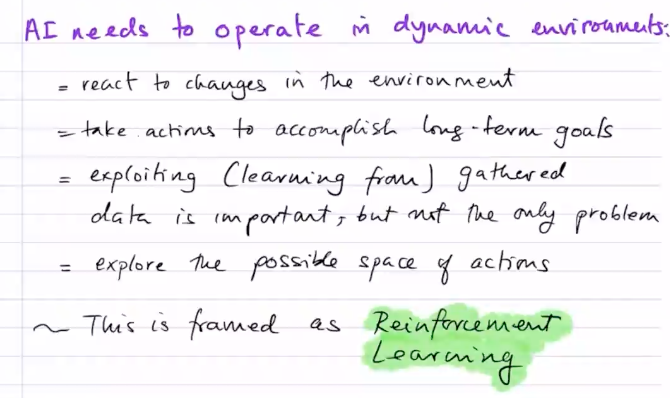 AI needs to operate in dynamic environments:
= react to changes in the environment
= take actions to accomplish long-term goals
= exploiting (learning from) gathered
data is important, but not the only problem
= explore the possible space of actions
~ This is framed as Reinforcement
Learning